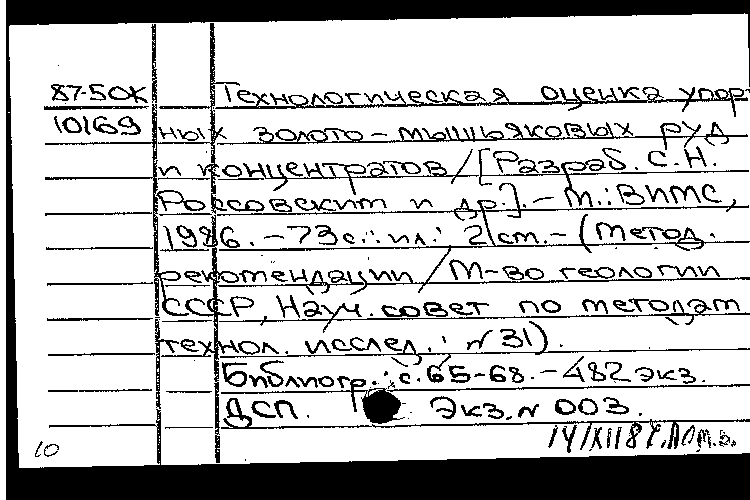 87-5ОК Технологическая оценка упор-
10169 ных золото-мышьяковых руд
и концентратов/[Разраб. С.Н.
Россовский и др.].-М.:ВИМС,
1986.-73с.:ил.; 21см.-(Метод.
рекомендации/М-во геологии
СССР, Науч. совет по методам
технол. исслед.; №31).
Библиогр.: с.65-68.-482 экз.
ДСП. Экз.№ 003.
10